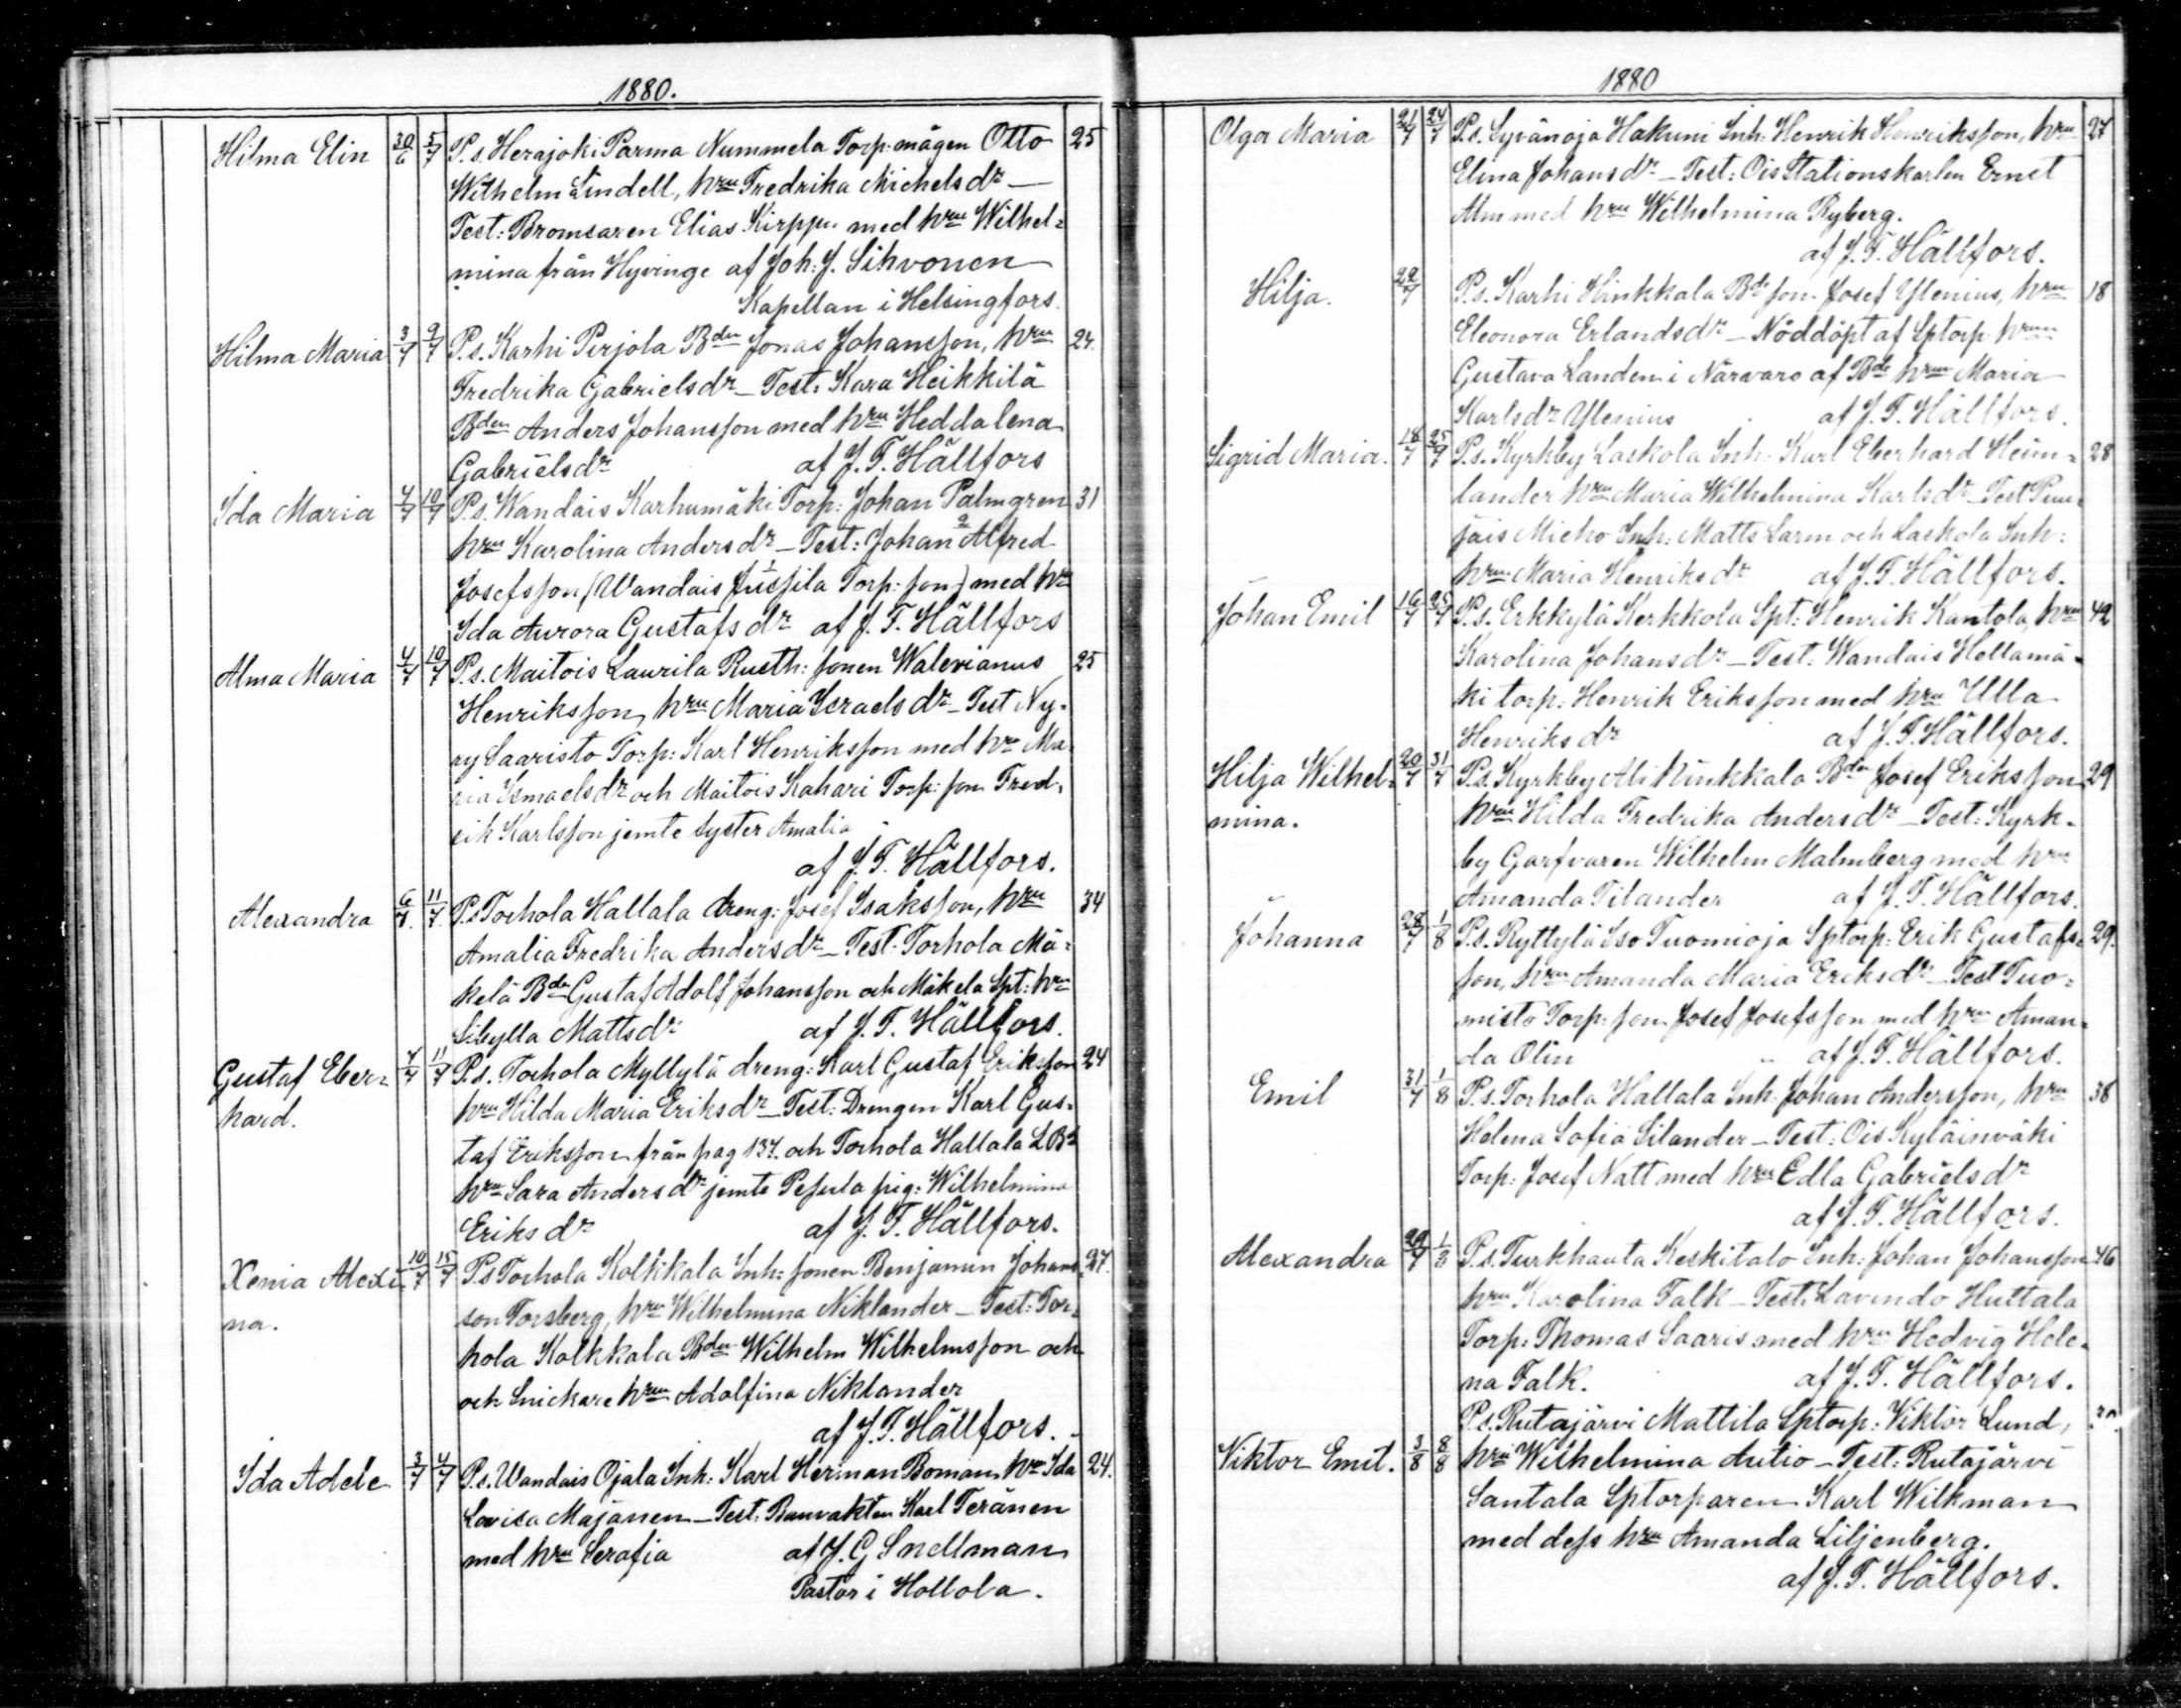 1880.
Hilma Elin 30/6 5/7 P.s. Herajoki Parma Nummela Torp: mågen Otto 25
Wilhelm Lindell, hru Fredrika Michelsdr —
Test: Bromsaren Elias Kirppu med hru Wilhel=
mina från Hyvinge af Joh: J. Sihvonen
Kapellan i Helsingfors.
Hilma Maria 3/7 9/7 P.s. Karhi Perjola Bden Jonas Johansson, hru 24.
Fredrika Gabrielsdr — Test: Kara Heikkilä
Bden Anders Johansson med hru Hedda lena
Gabrielsdr af J. F. Hällfors
Ida Maria 4/7 10/7 P.s. Wandais Karhumäki Torp: Johan Palmgren 31
hru Karolina Andersdr — Test: Johan Alfred
Josefsson (Wandais Jussila Torp: son) med hru
Ida Aurora Gustafsdr af J. F. Hällfors
Alma Maria 4/7 10/7 P.s. Maitois Laurila Rusth: sonen Walerianus 25
Henriksson, hru Maria Israelsdr — Test Ny=
ry Saaristo Torp: Karl Henriksson med hru Ma=
ria Ismaelsdr och Maitois Kahari Torp: son Fred=
rik Karlsson jemte syster Amalia
af J. F. Hällfors.
Alexandra 6/7. 11/7. P.s Torhola Hallala dreng: Josef Isaksson, hru 34
Amalia Fredrika Andersdr — Test. Torhola Mä=
kelä Bde Gustaf Adolf Johansson och Mäkelä Spt: hru
Sibylla Mattsdr af J. F. Hällfors.
Gustaf Eber= 7/7 11/7 P.s. Torhola Myllylä dreng: Karl Gustaf Eriksson 24
hard. hru Hilda Maria Eriksdr — Test: Drengen Karl Gus=
taf Eriksson från pag 137. och Torhola Hallala LBs
hru Sara Andersdr jemte Pesula pig: Wilhelmina
Eriksdr af J. F. Hällfors.
Xenia Alexi= 10/7 15/7 P.s Torhola Kolkkala Inh: sonen Benjamin Johans= 27.
na. son Forsberg, hru Wilhelmina Niklander — Test: Tor=
hola Kolkkala Bden Wilhelm Wilhelmsson och
och Snickare hru Adolfina Niklander
af J. F. Hällfors.
Ida Adele 3/7 4/7 P.s. Wandais Ojala Inh: Karl Herman Boman, hru Ida 24.
Lovisa Majanen — Test: Banvakten Karl Teränen
med hru Serafia af J. G Snellman
Pastor i Hollola.
1880
Olga Maria 21/7 24/7 P.s. Syvänoja Hakuni Inh: Henrik Henriksson, hru 27
Elina Johansdr — Test: Ois Stationskarlen Ernst
Alm med hru Wilhelmina Ryberg.
af J. F. Hällfors.
Hilja. 22/7 P.s. Karhi Hinkkala Bde son Josef Ylenius, hru 18
Eleonora Erlandsdr — Nöddöpt af Sptorp: hrun
Gustava Landen i Närvaro af Bde hrun Maria
Karlsdr Ylenius af J. F. Hällfors.
Sigrid Maria. 18/7 25/7 P.s. Kyrkby Laskola Inh: Karl Eberhard Heim= 28
lander hru Maria Wilhelmina Karlsdr — Test Puu=
jais Micko Inh: Matts Larm och Laskola Inh:
hru Maria Henriksdr af J. F. Hällfors.
Johan Emil 16/7 25/7 P.s. Erkkylä Kerkkola Spt: Henrik Kantola, hru 42
Karolina Johansdr — Test: Wandais Hellamä=
ki torp: Henrik Eriksson med hru Ulla
Henriksdr af J. F. Hällfors.
Hilja Wilhel= 20/7 31/7 P.s. Kyrkby Ali Hinkkala Bden Josef Eriksson 29
mina. hru Hilda Fredrika Andersdr — Test: Kyrk=
by Garfvaren Wilhelm Malmberg med hru
Amanda Tilander af J. F. Hällfors.
Johanna 28/7 1/8 P.s. Ryttylä Iso Tuomioja Sptorp: Erik Gustafs= 29.
son, hru Amanda Maria Eriksdr — Test Tuo=
misto Torp: son Josef Josefsson med hru Aman=
da Olin af J. F. Hällfors.
Emil 31/7 1/8 P.s. Torhola Hallala Inh: Johan Andersson, hru 38
Helena Sofia Silander — Test: Ois Kyläinväki
Torp: Josef Natt med hru Edla Gabrielsdr
af J. F. Hällfors.
Alexandra 29/7 1/8 P.s. Turkhauta Keskitalo Inh: Johan Johansson 46
hru Karolina Falk — Test. Lavindo Huttala
Torp: Thomas Saaris med hru Hedvig Hele=
na Falk. af J. F. Hällfors.
P.s. Rutajärvi Mattila Sptorp: Viktor Lund,
Viktor Emil. 3/8 8/8 hru Wilhelmina Autio — Test: Rutajärvi
Santala Sptorparen Karl Wilkman
med dess hru Amanda Liljenberg.
af J. F. Hällfors.